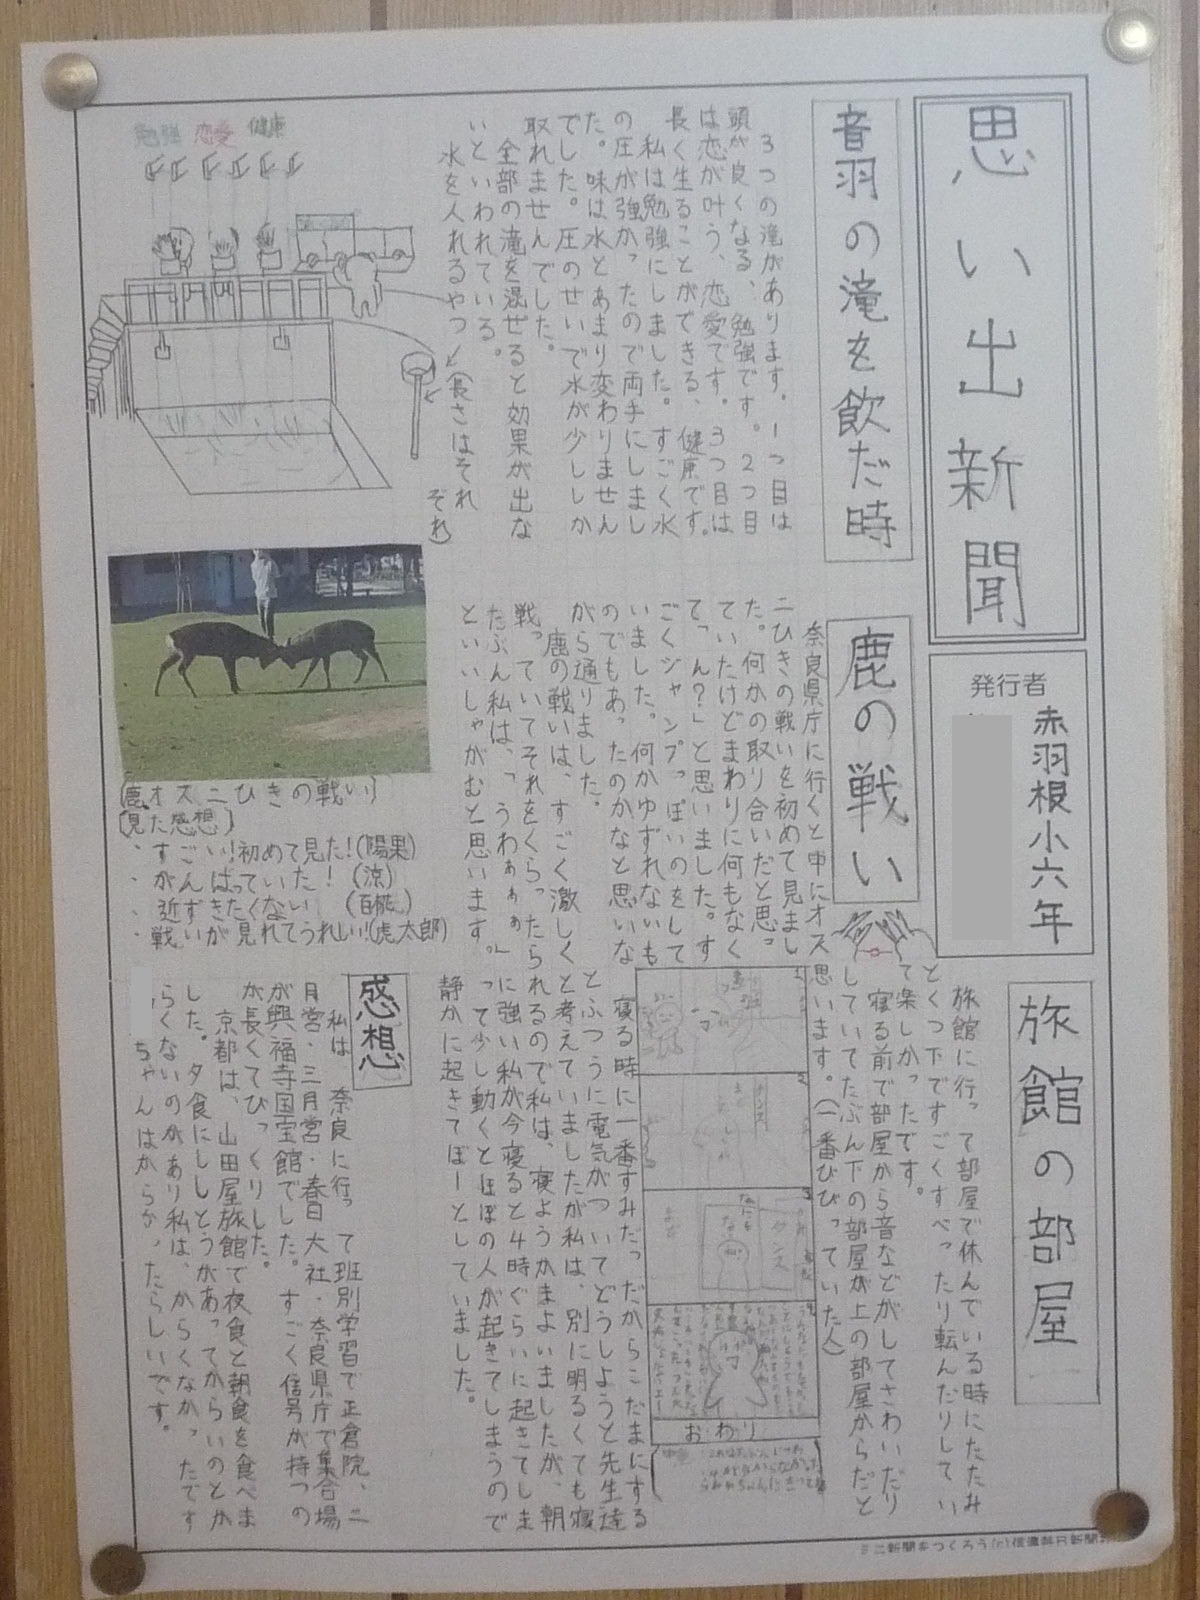 思い出新聞
発行者
赤羽根小六年
音羽の滝を飲だ時
3つの滝があります。1つ目は
頭が良くなる、勉強です。2つ目
は恋が叶う、恋愛です。3つ目は
長く生ることができる、健康です。
私は勉強にしました。すごく水
の圧が強かったので両手にしまし
た。味は水とあまり変わりません
でした。圧のせいで水が少ししか
取れませんでした。
全部の滝を混ぜると効果が出な
いといわれている。
水を入れるやつ
(長さはそれ
ぞれ)
勉強 恋愛 健康
鹿の戦い
奈良県庁に行くと中にオス
二ひきの戦いを初めて見まし
た。何かの取り合いだと思っ
ていたけどまわりに何もなく
て「ん?」と思いました。す
ごくジャンプっぽいのをして
いました。何かゆずれないも
のでもあったのかなと思いな
がら通りました。
鹿の戦いは、すごく激しく
戦っていてそれをくらったら
たぶん私は、「うわぁぁぁ」
といいしゃがむと思います。
(鹿オス二ひきの戦い)
(見た感想)
・すごい!初めて見た!(陽果)
・がんばっていた!(涼)
・近ずきたくない
・戦いが見れてうれしい!(虎太郎)
旅館の部屋
旅館に行って部屋で休んでいる時にたたみ
とくつ下ですごくすべったり転んだりしてい
て楽しかったです。
寝る前で部屋から音などがしてさわいだり
していてたぶん下の部屋が上の部屋からだと
思います。(一番びびっていた人)
おわり
寝る時に一番すみだっだからこだまにする
とふつうに電気がついてどうしようと先生達
と考えていましたが私は、別に明るくても寝
られるので私は、寝ようかまよいましたが、朝
に強い私が今寝ると4時ぐらいに起きてしま
って少し動くとほぼの人が起きてしまうので
静かに起きてぼーとしていました。
感想
私は 奈良に行って班別学習で正倉院、二
月営・三月営・春日大社・奈良県庁で集合場
が興福寺国宝館でした。すごく信号が持つの
が長くてびっくりした。
京都は、山田屋旅館で夜食と朝食を食べま
した。夕食にししとうがあってからいのとか
らくないのがあり私は、からくなかったです
ちゃんはからかったらしいです。